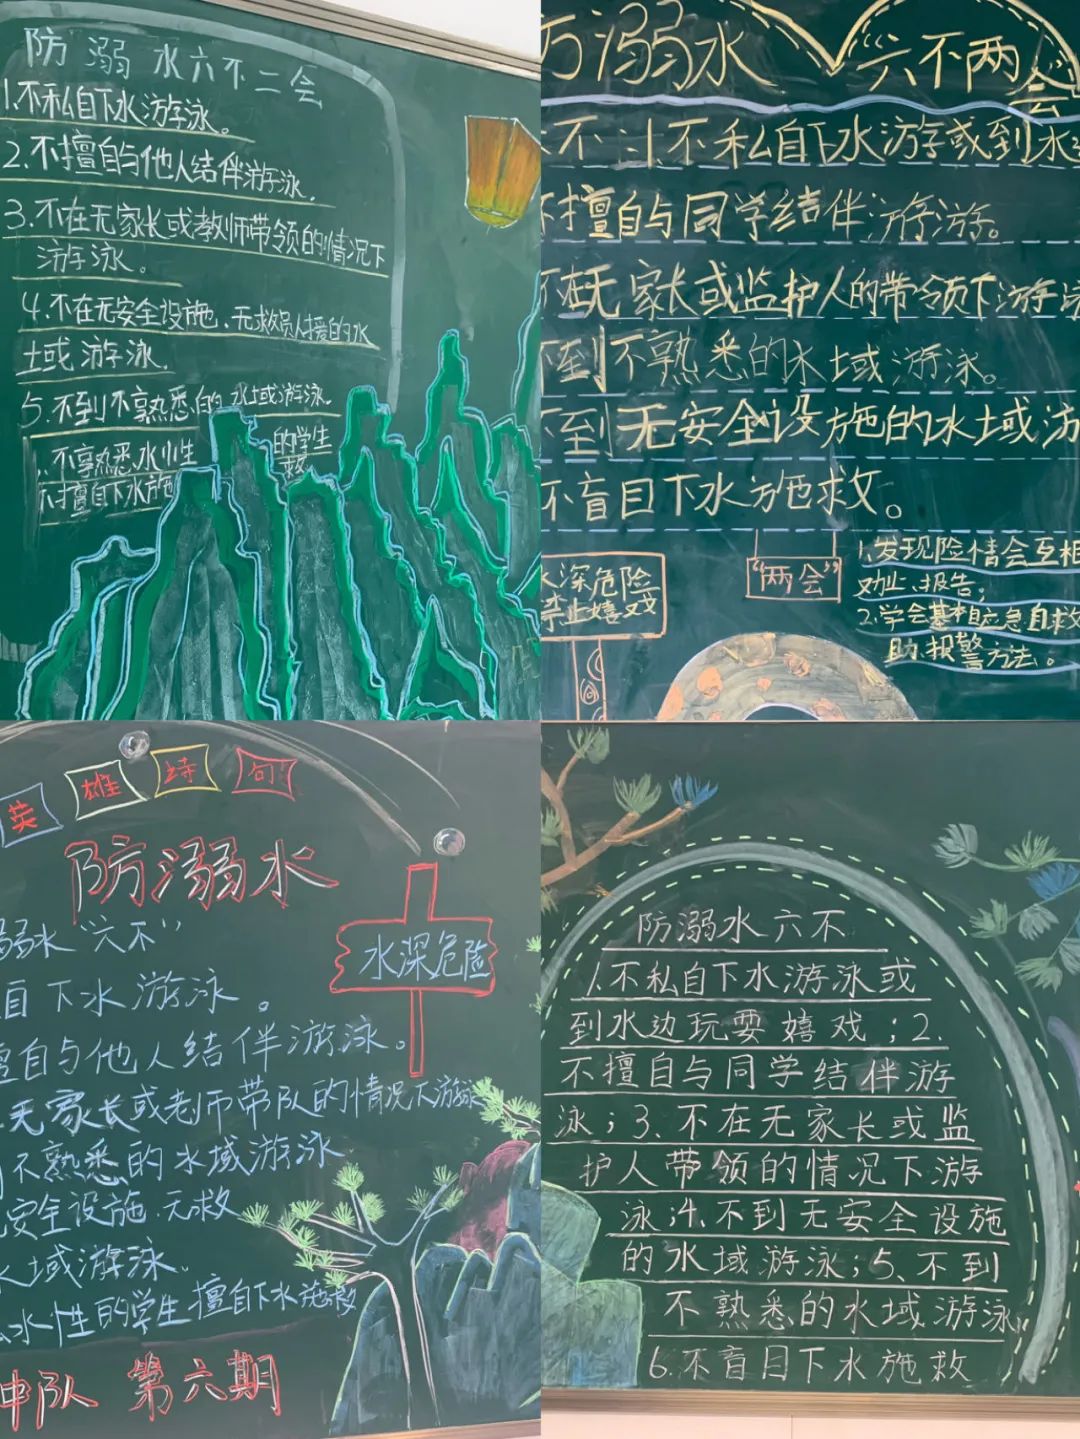 防溺水六不二会
1.不私自下水游泳。
2.不擅自与他人结伴游泳.
3.不在无家长或教师带领的情况下
游泳。
4.不在无安全设施、无救员人援的水
土或游泳.
5.不到不熟悉的水域游泳.
不享熟悉水性 的学生
不擅自下水施 救
防溺水 “六不两会”
不 1.不私自下水游或到水
不擅自与同学结伴游游。
不在无家长或监护人的带领下游泳
不到不熟悉的水域游泳。
不到无安全设施的水域游
不盲目下水施救。
水深危险
禁止嬉戏
“两会”
1.发现险情会互相
劝止、报告;
2.学会基本自应急自救
助、报警方法。
英雄诗句
防溺水
溺水“六不”
自下水游泳。
擅自与他人结伴游泳。
无家长或老师带队的情况下游泳
不熟悉的水域游泳
安全设施.无救
水域游泳.
水性的学生擅自下水施救
水深危险
中队 第六期
防溺水六不
1.不私自下水游泳或
到水边玩耍嬉戏;2.
不擅自与同学结伴游
泳;3、不在无家长或监
护人带领的情况下游
泳;4.不到无安全设施
的水域游泳;5、不到
不熟悉的水域游泳,
6.不盲目下水施救